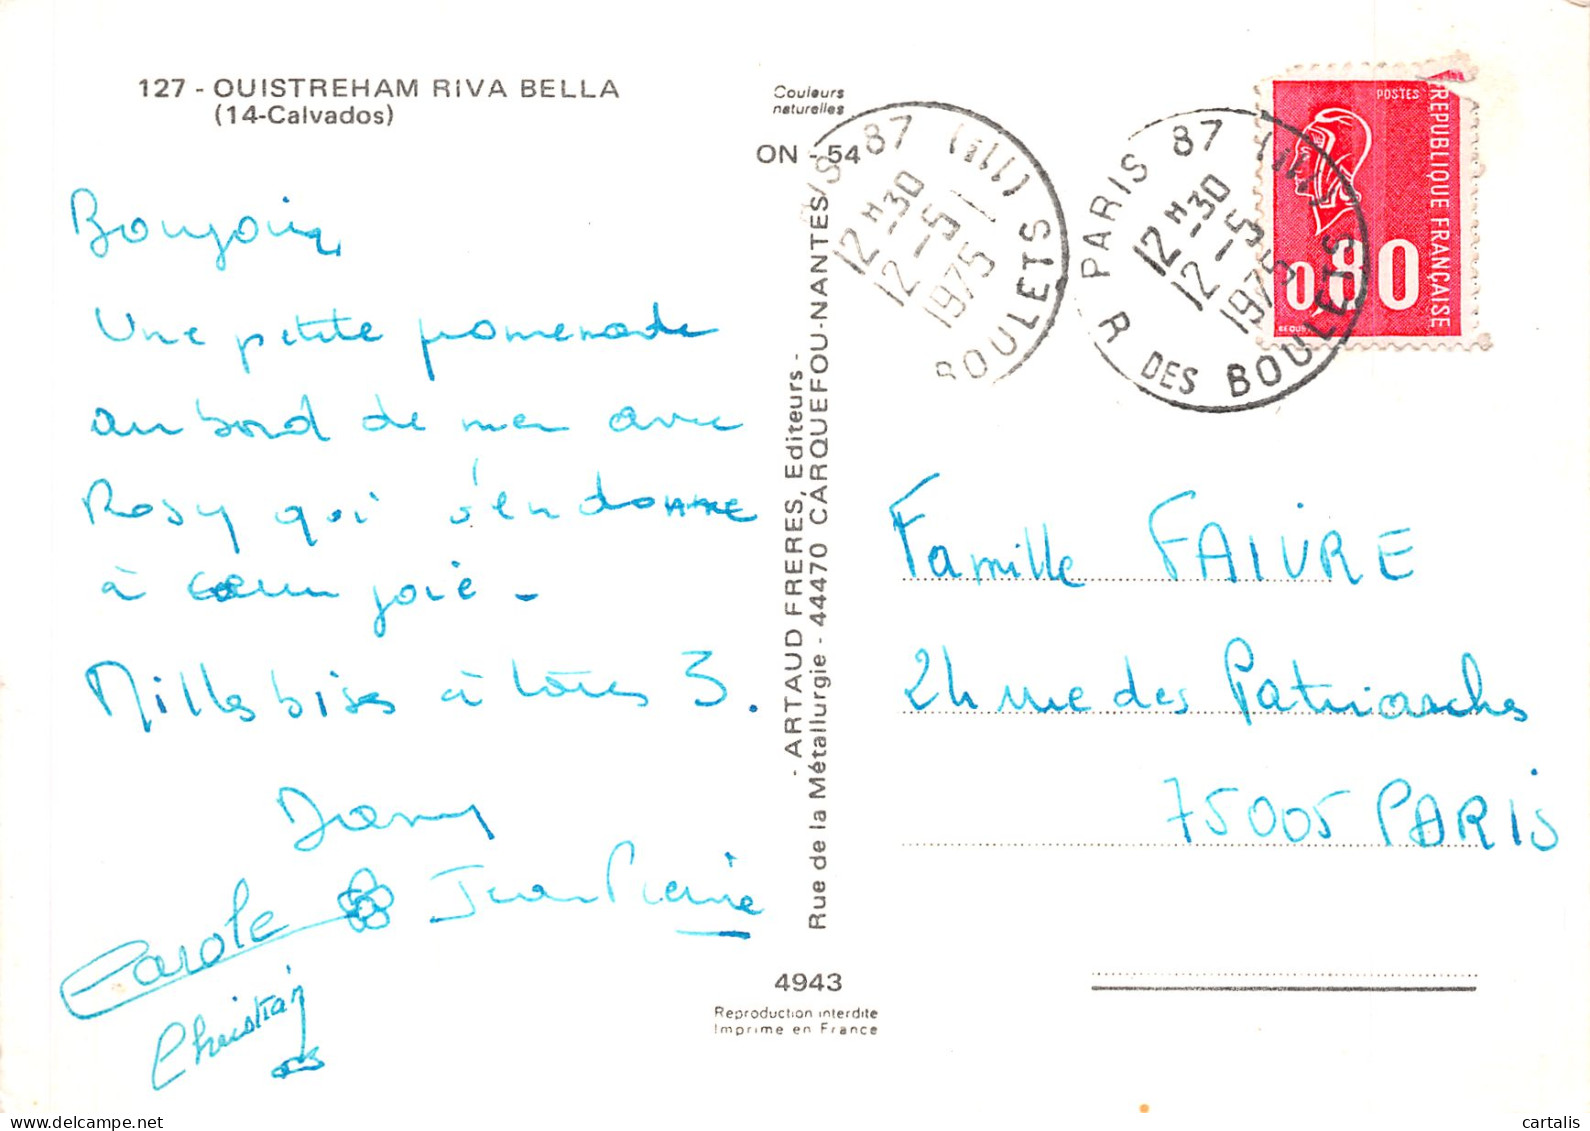 127 - OUISTREHAM RIVA BELLA
(14-Calvados)
Couleurs
naturelles
ON - 54
Bonjour,
Une petite promenade
au bord de mer avec
Rosy qui s'endorme
à cœur joie -
Milles bises à tous 3.
Jean Pierre
Carole
Christian
- ARTAUD FRERES, Editeurs -
Rue de la Métallurgie - 44470 CARQUEFOU-NANTES
4943
Reproduction interdite
Imprime en France
87
12 H 30
12 - 5
1975
BOULETS
PARIS 87
12 H 30
12 - 5
1975
R DES BOULETS
POSTES
REPUBLIQUE FRANÇAISE
0,80
Famille FAIVRE
24 rue des Patriarches
75005 PARIS
cartalis